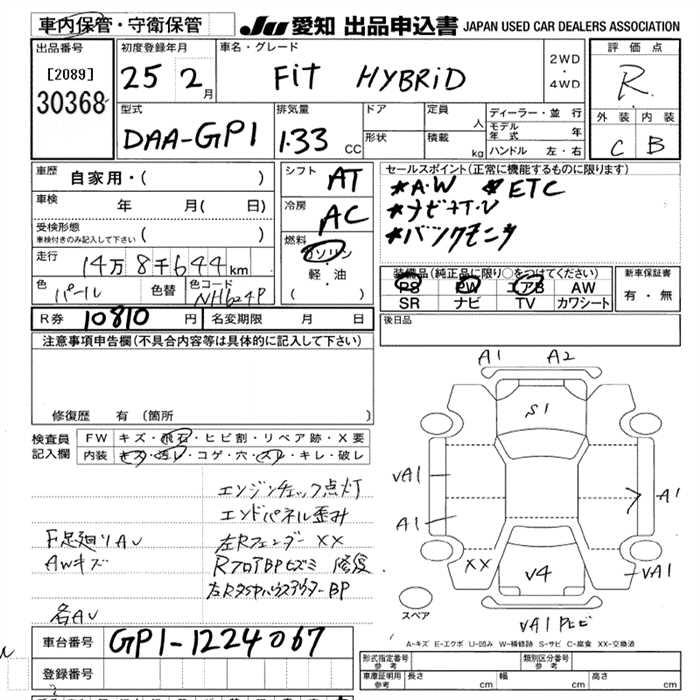 車内保管・守衛保管
JU 愛知 出品申込書 JAPAN USED CAR DEALERS ASSOCIATION
出品番号 初度登録年月 車名・グレード 評価点
[2089] 25 2月 FIT HYBRID 2WD・4WD R
30368
型式 排気量 ドア 定員 人 ディーラー・並行 外装 内装
DAA-GP1 1.33 CC 形状 積載 kg モデル年式 年 C B
ハンドル 左・右
車歴 自家用・( ) シフト AT セールスポイント(正常に機能するものに限ります)
車検 年 月( 日) 冷房 AC *A・W *ETC
*ナビ+T・V
受検形態 車検付きのみ記入して下さい ( ) 燃料 ガソリン *バックモニタ
走行 14万8千644km 軽・油 装備品(純正品に限り○をつけてください) 新車保証書
色 パール 色替 色コード NH624P ( ) PS PW エアB AW 有・無
SR ナビ TV カワシート
R券 10810円 名変期限 月 日 後日品
注意事項申告欄(不具合内容等は具体的に記入して下さい)
修復歴 有(箇所 )
検査員記入欄 FW キズ・飛石・ヒビ割・リペア跡・X要
内装 キズ・汚レ・コゲ・穴・スレ・キレ・破レ
エンジンチェック点灯
エンドパネル歪み
F足廻リAU 左Rフェンダー XX
AWキズ RフロアBPヒズミ 修復
左RタイヤハウスアウターBP
各AU
A1 A2
S1
VA1
A1 A1
XX V4 VA1
スペア
VA1
A-キズ E-エクボ U-凹み W-補修跡 S-サビ C-腐食 XX-交換済
車台番号 GP1-1224067
登録番号
形式指定番号 参考 類別区分番号 参考
車庫証明用 参考 長さ cm 幅 cm 高さ cm